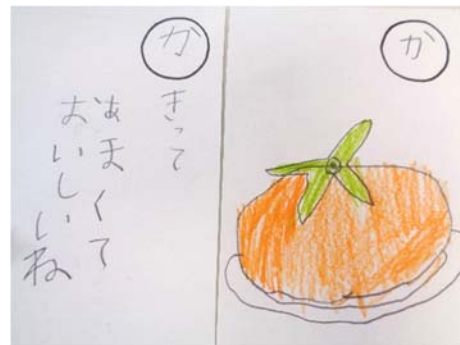 か
きって
あまくて
おいしいね
か